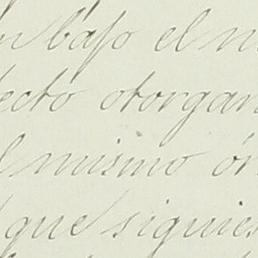 bajo el
ecto otorgan
l mismo ór
que siguies